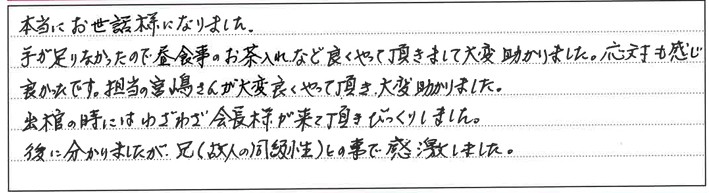 本当にお世話様になりました。
手が足りなかったので昼食事のお茶入れなど良くやって頂きまして大変助かりました。応対も感じ
良かったです。担当の宮嶋さんが大変良くやって頂き、大変助かりました。
出棺の時にはわざわざ会長様が来て頂きびっくりしました。
後に分かりましたが、兄(故人の同級生)との事で感激しました。